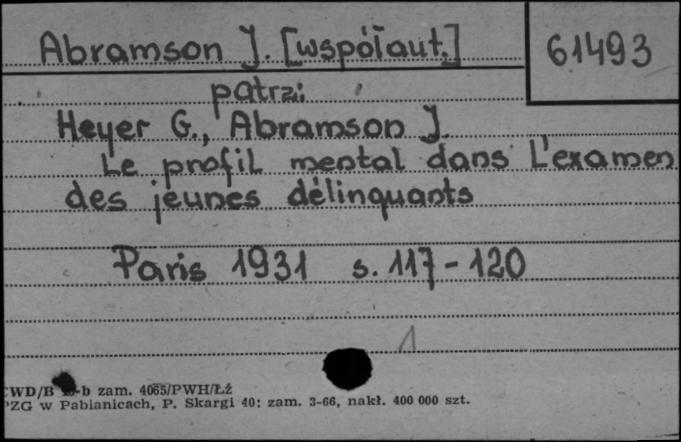 Abramson J. [współaut.]
61493
patrz:
Heyer G., Abramson J.
Le profil mental dans l'examen
des jeunes délinquants
Paris 1931 s. 117-120
1
CWD/B -b zam. 4065/PWH/Łż
PZG w Pabianicach, P. Skargi 40; zam. 3-66, nakł. 400 000 szt.